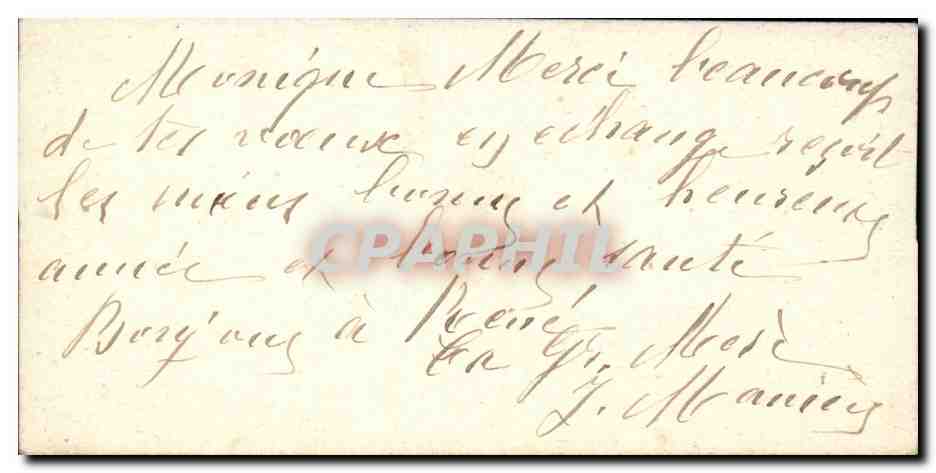 Monique Merci beaucoup
de tes voeux en echange reçoit
les miens bonne et heureuse
année et bonne santé
Bonjour à René
ta Gr. Mère
J.
CPARPHIL